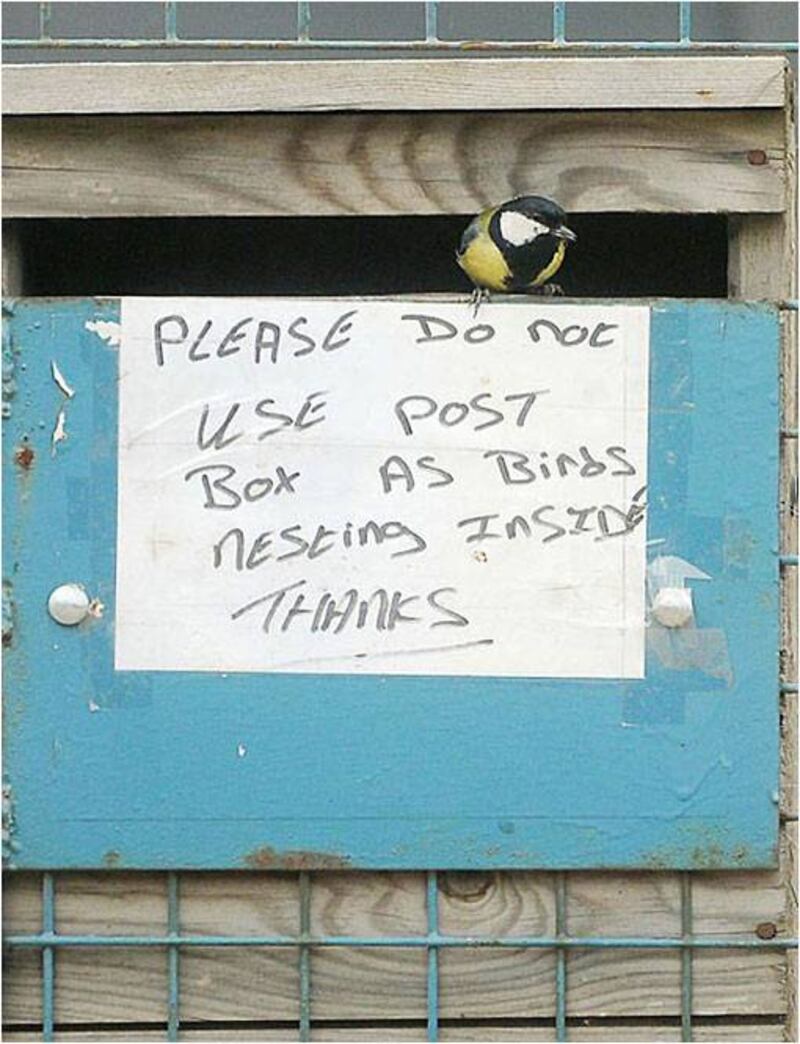 PLEASE DO NOT
USE POST
BOX AS BIRDS
NESTING INSIDE
THANKS